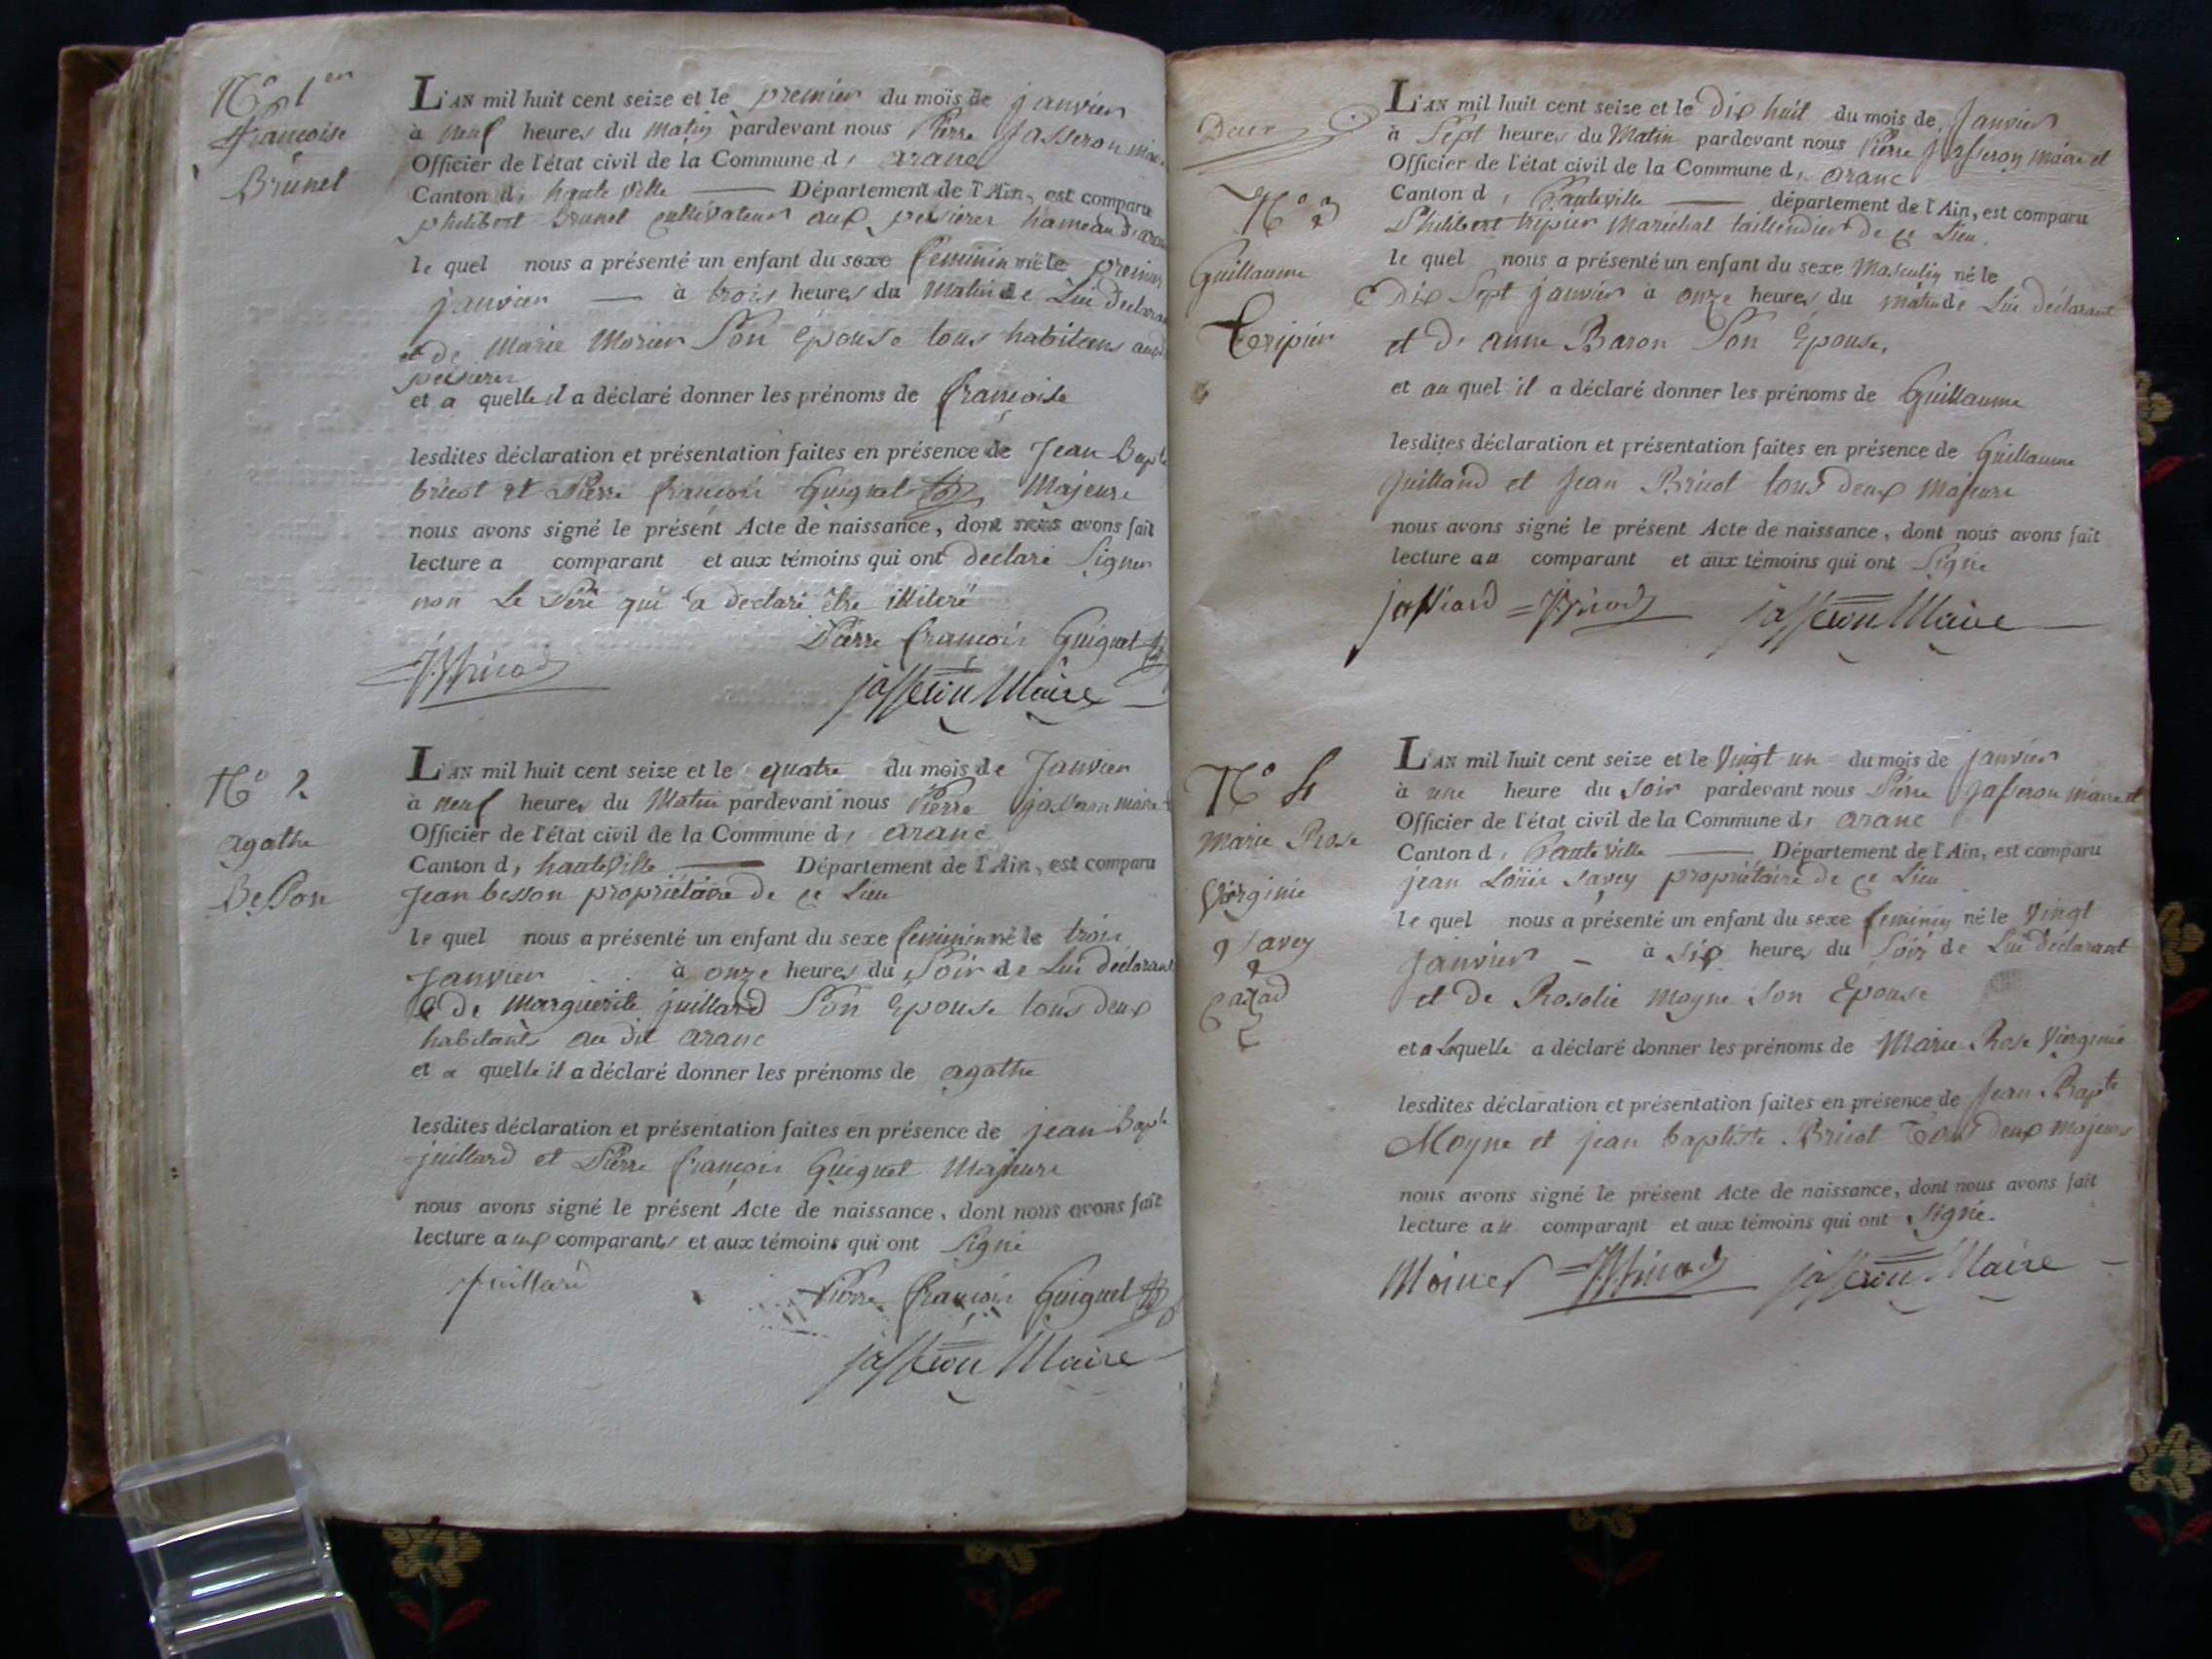 N° 1er
françoise
Brunet
L'AN mil huit cent seize et le premier du mois de janvier
à neuf heures du matin pardevant nous Pierre Jasseron maire
Officier de l'état civil de la Commune d' aranc
Canton d' haute ville Département de l'Ain, est comparu
philibert Brunet cultivateur aux hameau d'aranc
le quel nous a présenté un enfant du sexe feminin né le premier
janvier à trois heures du matin de Lui declarant
et de Marie Morier Son épouse tous habitans
et a quelle il a déclaré donner les prénoms de françoise
lesdites déclaration et présentation faites en présence de Jean Bapte
bricot et Pierre françois Guiguet Majeurs
nous avons signé le présent Acte de naissance, dont nous avons fait
lecture a comparant et aux témoins qui ont declaré Signer
non Le Père qui a declaré être illiteré
Pierre françois Guiguet
jasseron Maire
N° 2
agathe
Besson
L'AN mil huit cent seize et le quatre du mois de Janvier
à neuf heures du Matin pardevant nous Pierre jasseron maire
Officier de l'état civil de la Commune d' aranc
Canton d' hauteville Département de l'Ain, est comparu
Jean besson propriétaire de ce Lieu
le quel nous a présenté un enfant du sexe feminin né le trois
Janvier à onze heures du Soir de Lui déclarant
& de Marguerite juillard Son Epouse tous deux
habitants au dit aranc
et a quelle il a déclaré donner les prénoms de agathe
lesdites déclaration et présentation faites en présence de jean Bapte
juillard et Pierre françois Guiguet Majeurs
nous avons signé le présent Acte de naissance, dont nous avons fait
lecture aux comparants et aux témoins qui ont Signé
juillard Pierre françois Guiguet
jasseron Maire
Deux
N° 3
Guillaume
Tripier
L'AN mil huit cent seize et le dix huit du mois de Janvier
à Sept heures du Matin pardevant nous Pierre Jasseron maire et
Officier de l'état civil de la Commune d' aranc
Canton d' hauteville département de l'Ain, est comparu
Philibert tripier Maréchal taillendier de ce Lieu
le quel nous a présenté un enfant du sexe Masculin né le
Dix Sept janvier à onze heures du matin de Lui déclarant
et d' anne Baron Son Epouse,
et au quel il a déclaré donner les prénoms de Guillaume
lesdites déclaration et présentation faites en présence de Guillaume
juillard et Jean Bricot tous deux majeurs
nous avons signé le présent Acte de naissance, dont nous avons fait
lecture au comparant et aux témoins qui ont Signé
jasseron Maire
N° 4
Marie Rose
Virginie
Savey
L'AN mil huit cent seize et le Vingt un du mois de janvier
à une heure du Soir pardevant nous Pierre Jasseron maire et
Officier de l'état civil de la Commune d' aranc
Canton d' hauteville Département de l'Ain, est comparu
jean Louis Savey propriétaire de ce Lieu
le quel nous a présenté un enfant du sexe feminin né le Vingt
janvier à Six heures du Soir de Lui déclarant
et de Rosalie Moyne Son Epouse
et a Laquelle a déclaré donner les prénoms de Marie Rose Virginie
lesdites déclaration et présentation faites en présence de Jean Bapte
Moyne et jean baptiste Bricot tous deux majeurs
nous avons signé le présent Acte de naissance, dont nous avons fait
lecture au comparant et aux témoins qui ont Signé.
jasseron Maire